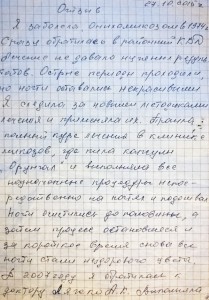 Отзыв 27.10.2015г.
Я заболела онихомикозом в 1974г.
Сразу обратилась в районный КВД
Лечение не давало нужных результатов.
Острые периоды проходили,
но ногти оставались некрасивыми
Я следила за новыми методиками
лечения и применяла их. Прошла
полный курс лечения в клинике
микозов, где пила капсулы
"Орунгал" и выполняла все
назначенные процедуры непосредственно
на ногтях и подошвах
Ногти очистились до половины, а
затем процесс остановился и
за короткое время снова все
ногти стали нездорового цвета
В 2007 году я обратилась к
доктору А.К. Выполняла